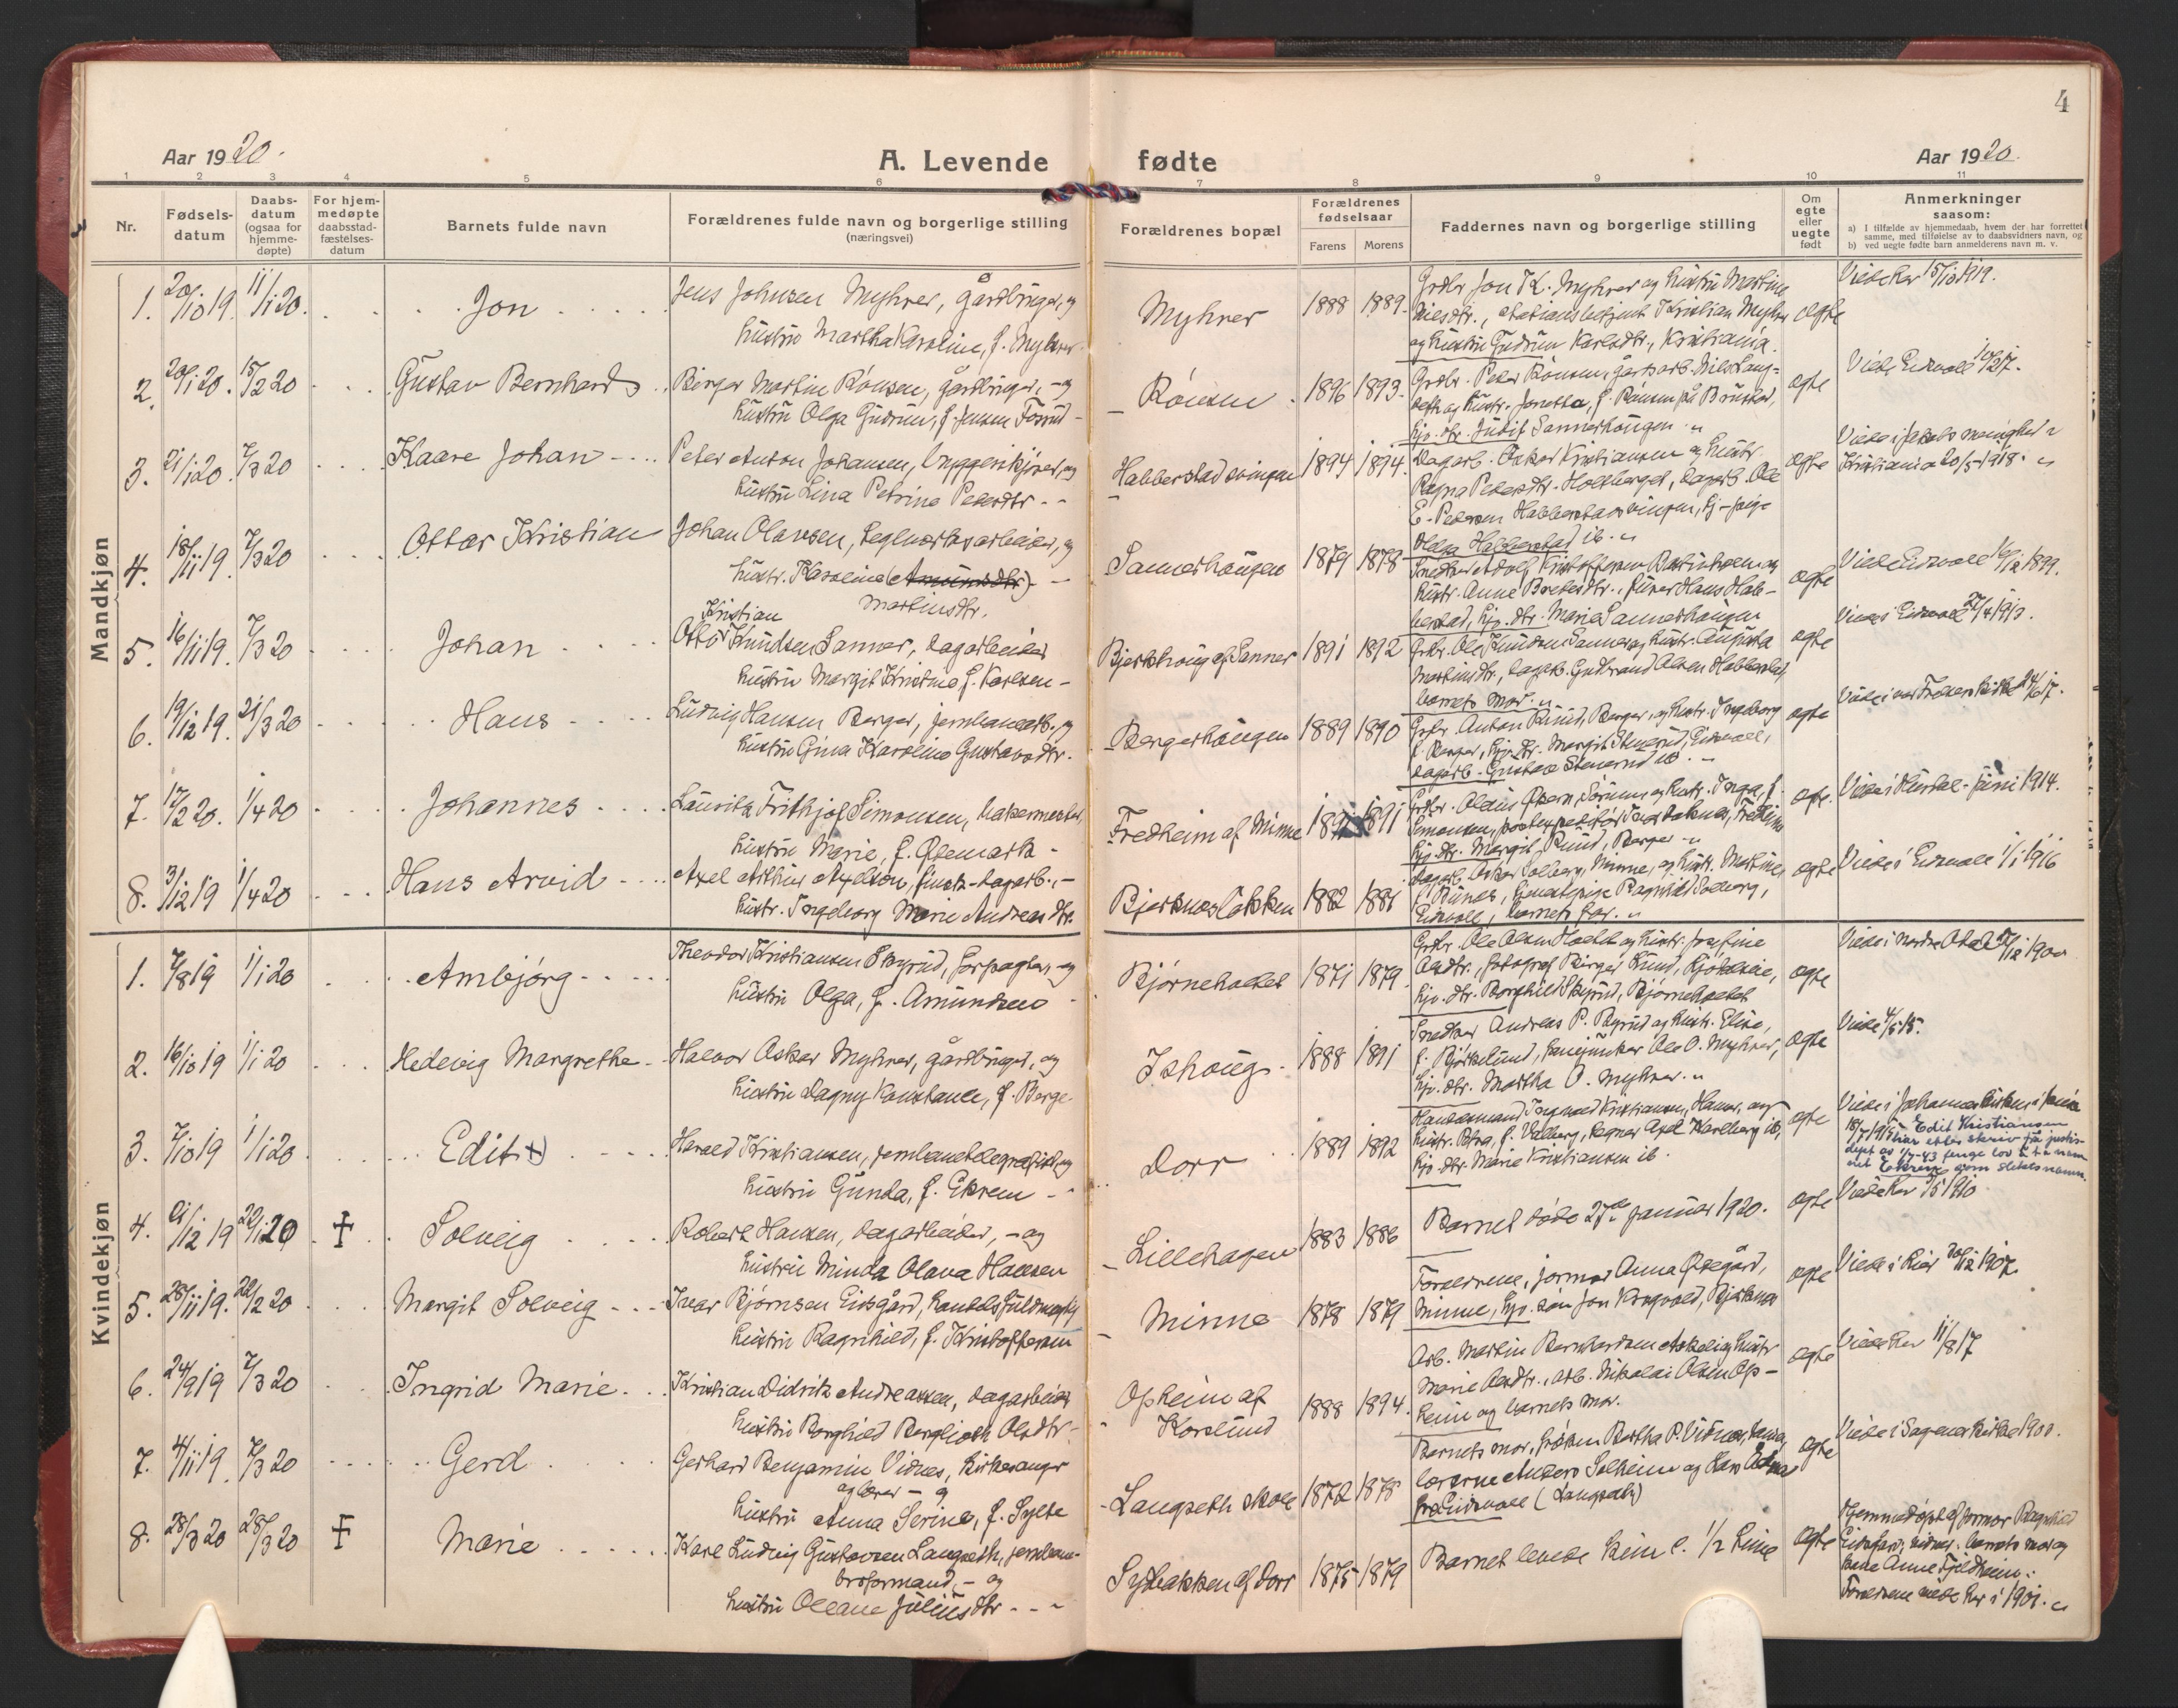 4
Aar 1920.
A. Levende fødte
Aar 1920.
1 2 3 4 5 6 7 8 9 10 11
Nr.
Fødsels-
datum
Daabs-
datum
(ogsaa for
hjemme-
døpte)
For hjem-
medøpte
daabsstad-
fæstelses-
datum
Barnets fulde navn
Forældrenes fulde navn og borgerlige stilling
(næringsvei)
Forældrenes bopæl
Forældrenes
fødselsaar
Farens Morens
Faddernes navn og borgerlige stilling
Om
egte
eller
uegte
født
Anmerkninger
saasom:
a) I tilfælde av hjemmedaab, hvem der har forrettet
samme, med tilføielse av to daabsvidners navn, og
b) ved uegte fødte barn anmelderens navn m. v.
Mandkjøn
1. 20/10 19. 11/1 20. Jon
Jens Johnsen Myhrer, gårdbruger, og
hustru Martha Karoline, f. Myhrer.
Myhrer 1888 1889.
Grdbr Jon K. Myhrer og hustru Martine
Nilsdtr., stationsbetjent Kristian Myhrer
og hustru Gudrun Karlsdtr., Kristiania.
ægte
Viede her 15/10 1919.
2. 20/1 20. 15/2 20 Gustav Bernhard
Birger Martin Rönsen, gårdbruger, - og
hustru Olga Gudrun, f. Jensen Fossrud -
Rönsen 1896 1893.
Grdbr. Peter Rönsen, gårdsarb. Nils Lang-
seth og hustr. Jonetta, f. Rönsen på Brustad,
hjv. dtr. Judit Sannerhaugen
ægte
Viede Eidsvoll 10/2 17.
3. 21/1 20. 7/3 20 Kaare Johan
Peter Anton Johansen, bryggerikjörer, og
hustru Lina Petrine Pedersdtr.
Habberstadsvingen 1894 1894.
Dagarb. Oskar Kristiansen og hustr.
Ragna Pedersdtr. Holtberget, dagarb. Ole
E. Pedersen Habberstadsvingen, hj-pige
Helga Habberstad ib.
ægte
Viede i Jakobs menighet i
Kristiania 20/5-1918.
4. 18/11 19. 7/3 20 Ottar Kristian
Johan Olavsen, teglverksarbeider, og
hustr. Karoline (Amundsdtr) -
Martinsdtr.
Sannerhaugen 1879 1878
Snedker Adolf Kristoffersen Bakkeholen og
hustr. Anne Pedersdtr., Hans Hab-
berstad, hjv. dtr. Marie Sannerhaugen
ægte
Viede Eidsvoll 16/12 1899.
5. 16/11 19. 7/3 20 Johan
Kristian
Otto Knudsen Sanner, dagarbeider
hustru Margit Kristine f. Karlsen -
Bjerkhaug af Sanner 1891 1892
Grdbr. Ole Knudsen Sanner og hustr. Augusta
Martinsdtr., dagarb. Gudbrand Olsen Habberstad,
barnets mor.
ægte
Viede i Eidsvoll 27/4 1913.
6. 19/12 19. 21/3 20 Hans
Ludvig Hansen Berger, jernbanearb., og
hustru Gina Karoline Gustavsdtr.
Bergerhaugen 1889 1890
Grdbr. Anton Ruud, Berger, og hustr. Ingeborg
f. Berger, hjv. dtr. Margit Stensrud, Eidsvoll,
dagarb. Gustav Stensrud ib.
ægte
Viede i vor Frelsers kirke 24/6 17.
7. 17/2 20. 1/4 20 Johannes
Lauritz Frithjof Simonsen, bakermester,
hustru Marie, f. Ødemark -
Fredheim af Minne 1891
hjv. dtr. Margit Ruud, Berger
ægte.
Viede i Hurdal - juni 1914.
8. 31/12 19 1/4 20 Hans Arvid
Axel Arthur Axelsen, svensk-dagarb., -
hustr. Ingeborg Marie Andreasdtr.
Bjerknesløkken 1882 1881
Dagarb. Oskar Solberg, Minne, og hustr. Martine,
f. Runes, tjenestepige Ragnhild Solberg,
Eidsvoll, barnets far.
ægte
Viede i Eidsvoll 1/1 1916
Kvindekjøn
1. 7/8 19 1/1 20 Ambjörg
Theodor Kristiansen Skyrud, forpagter, og
hustru Olga, f. Amundsen
Björneholtet 1871 1879.
Grdbr. Ole Olsen Holtet og hustr. Josefine
Olsdtr., fotograf Birger Ruud,
hjv. dtr. Borghild Skyrud, Björneholtet
ægte
Viede i nordre Odal 1900
2. 16/10 19 1/1 20 Hedevig Margrethe
Halvor Oskar Myhrer, gårdbruger, og
hustru Dagny Konstance, f. Berge
Ishaug. 1888 1891
Snedker Andreas P. Byrud og hustr. Elise,
f. Björkelund, Ole O. Myhrer,
hjv. dtr. Martha O. Myhrer.
ægte
Viede 4/5 15.
3. 7/10 19 1/1 20 Edit x)
Harald Kristiansen, jernbanetelegrafist, og
hustru Gunda, f. Ekrem
Dorr 1889 1892
Handelsmand Ingvald Kristiansen, Hamar, og
hustr. Petra, f. Valberg, Axel Karlberg ib,
hjv. dtr. Marie Kristiansen ib.
ægte
Viede i Johannes kirken i
18/7 1915 Edit Kristiansen
har etter skriv frå justis-
dept av 1/7-43 fenge lov å ta nam-
net Ekrem som slektsnamn.
4. 21/12 19 22/1 20 + Solveig
Robert Hansen, dagarbeider, - og
hustru Minda Olava Hansen
Lillehagen 1883 1886
Barnet døde 27de januar 1920.
ægte
Viede her 1910
5. 28/11 19. 22/2 20 Margit Solveig
Ivar Bjørnsen Eidsgård, handelsfuldmægtig
hustru Ragnhild, f. Kristoffersen
Minne 1878 1879
Forældrene, jormor Anna Ødegård,
Minne, hjv. sön Jon Krogvold, Bjerknes
ægte
Viede i Lier 30/12 1907.
6. 24/9 19 7/3 20 Ingrid Marie
Kristian Didrik Andreassen, dagarbeider
hustru Borghild Bergliot Olsdtr
Opheim af
Korslund 1888 1894.
Arb. Martin Bernhardsen og hustr
Marie Olsdtr., arb. Nikolai Olsen Op-
heim og barnets mor.
ægte
Viede her 11/8 17
7. 4/11 19. 7/3 20 Gerd
Gerhard Benjamin Vidnes, kirkesanger
og lærer - og
hustru Anna Serine, f. Sylte
Langseth skole 1872 1878
Barnets mor, frøken Bertha P. Vidnes,
lærerne Anders Solheim og
fra Eidsvoll (Langseth)
ægte
Viede i Sagene kirke 1900.
8. 28/3 20 28/3 20 + Marie
Karl Ludvig Gustavsen Langseth, jernbane-
broformand, - og
hustru Oleane Juliusdtr
Sydbakken af Dorr 1875 1879
Barnet levede kun c. 1/2 time
ægte
Hjemmedøpt af jormor Ragnhild
Eidsgård; vidner: barnets mor og
Anne Fjeldheim.
Forældrene viede her i 1901.